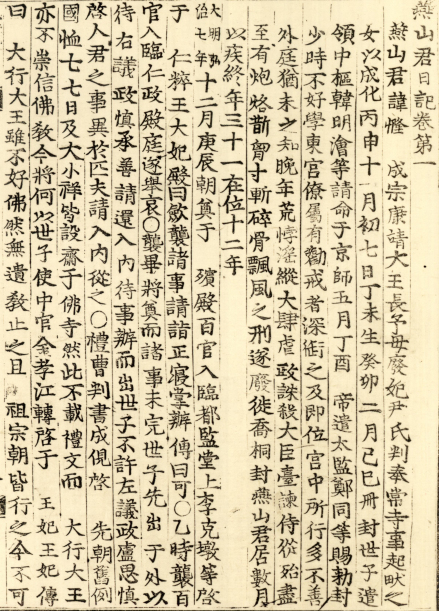 燕山君日記卷第一
燕山君諱㦕 成宗康靖大王長子母廢妃尹氏判奉常寺事起畎之
女以成化丙申十一月初七日丁未生癸卯二月己巳冊封世子遣
領中樞韓明澮等請命于京師五月丁酉 帝遣太監鄭同等賜勅封
少時不好學東宮僚屬有勸戒者深銜之及即位宮中所行多不善
外庭猶未之知晚年荒悖淫縱大肆虐政誅殺大臣臺諫侍從殆盡
至有炮烙斮胷寸斬碎骨飄風之刑遂廢徙喬桐封燕山君居數月
以疾終年三十一在位十二年
大明弘治七年十二月庚辰朝奠于 殯殿百官入臨都監堂上李克墩等啓
于 仁粹王大妃殿曰斂襲諸事請詣正寢掌辦傳曰可○乙時襲百
官入臨仁政殿庭遂舉哀○襲畢將奠而諸事未完世子先出于外以
待右議政愼承善請還入內待事辦而出世子不許左議政盧思愼
啓人君之事異於匹夫請入內從之○禮曹判書成俔啓 先朝舊例
國恤七七日及大小祥皆設齋于佛寺然此不載禮文而 大行大王
亦不崇信佛敎今將何以世子使中官金孝江轉啓于 王妃王妃傳
曰 大行大王雖不好佛然無遺敎止之且 祖宗朝皆行之今不可